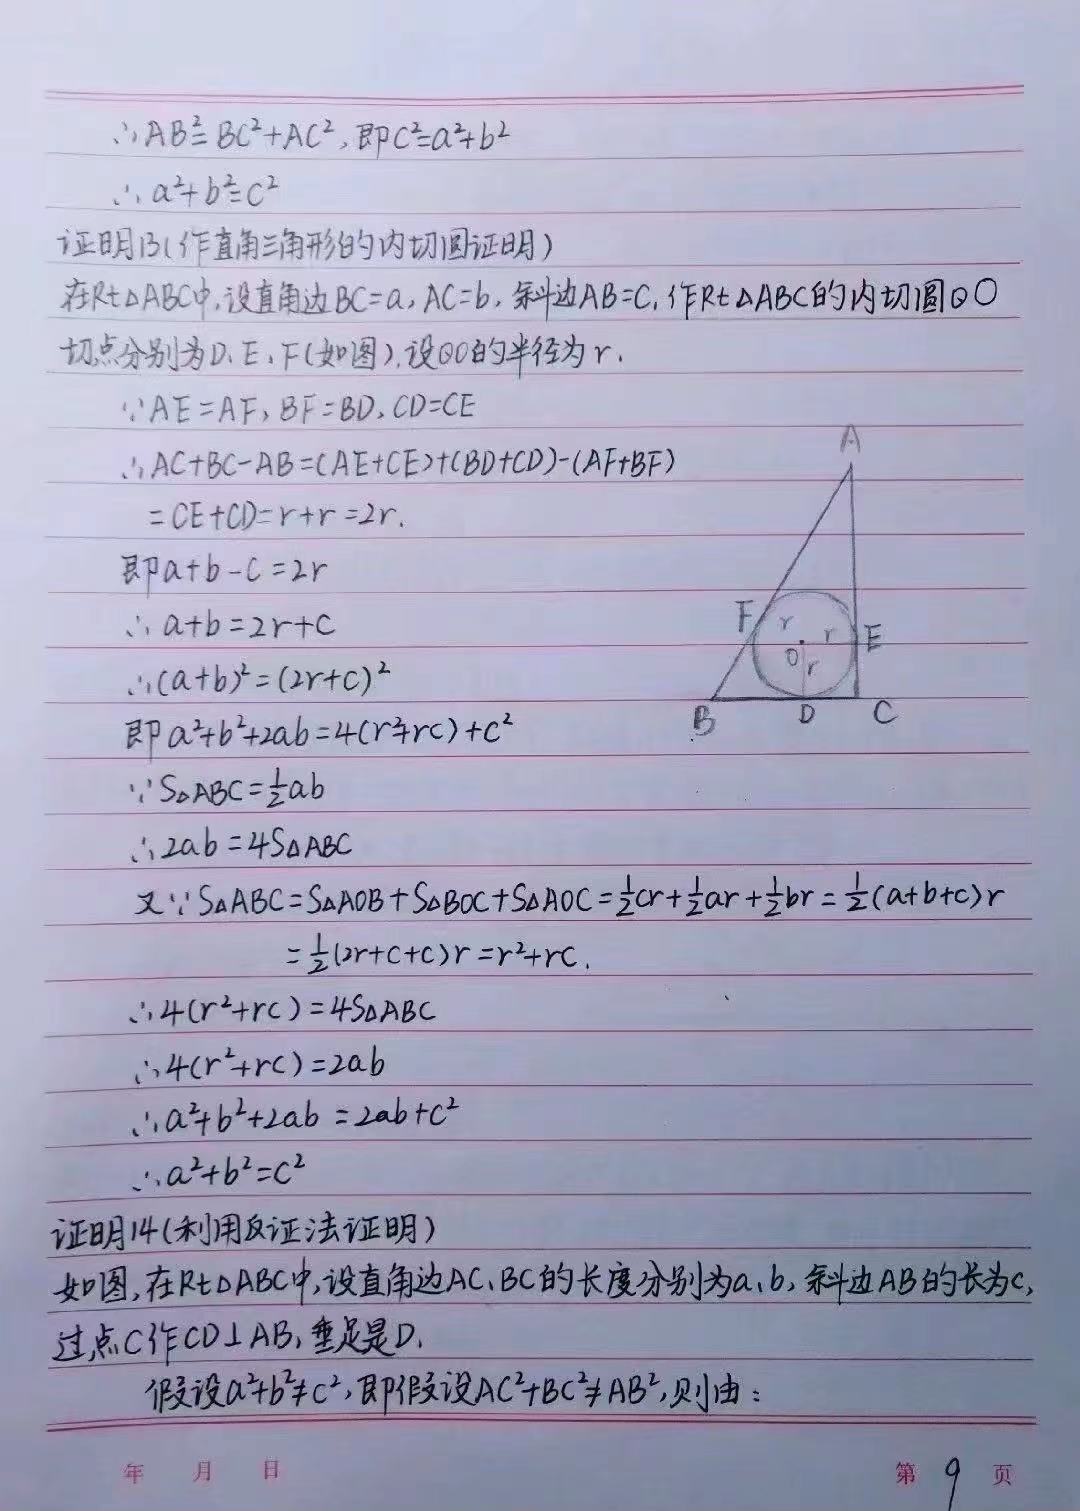 ∴AB²=BC²+AC², 即C²=a²+b²
∴a²+b²=c²
证明13(作直角三角形的内切圆证明)
在Rt△ABC中,设直角边BC=a, AC=b, 斜边AB=C, 作Rt△ABC的内切圆⊙O
切点分别为D、E、F(如图),设⊙O的半径为r.
∵AE=AF, BF=BD, CD=CE
∴AC+BC-AB=(AE+CE)+(BD+CD)-(AF+BF)
=CE+CD=r+r=2r.
即a+b-c=2r
∴a+b=2r+c
∴(a+b)²=(2r+c)²
即a²+b²+2ab=4(r²+rc)+c²
∵S△ABC=½ab
∴2ab=4S△ABC
又∵S△ABC=S△AOB+S△BOC+S△AOC=½cr+½ar+½br=½(a+b+c)r
=½(2r+c+c)r=r²+rc.
∴4(r²+rc)=4S△ABC
∴4(r²+rc)=2ab
∴a²+b²+2ab=2ab+c²
∴a²+b²=c²
A
F r r E
O r
B D C
证明14(利用反证法证明)
如图,在Rt△ABC中,设直角边AC、BC的长度分别为a、b, 斜边AB的长为c,
过点C作CD⊥AB, 垂足是D.
假设a²+b²≠c², 即假设AC²+BC²≠AB², 则由:
年 月 日 第9页